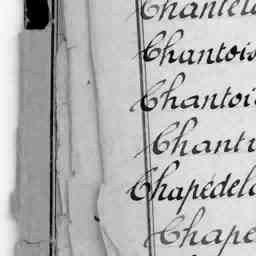 Chantela
Chantois
Chantoi
Chantr
Chapédela
Chape